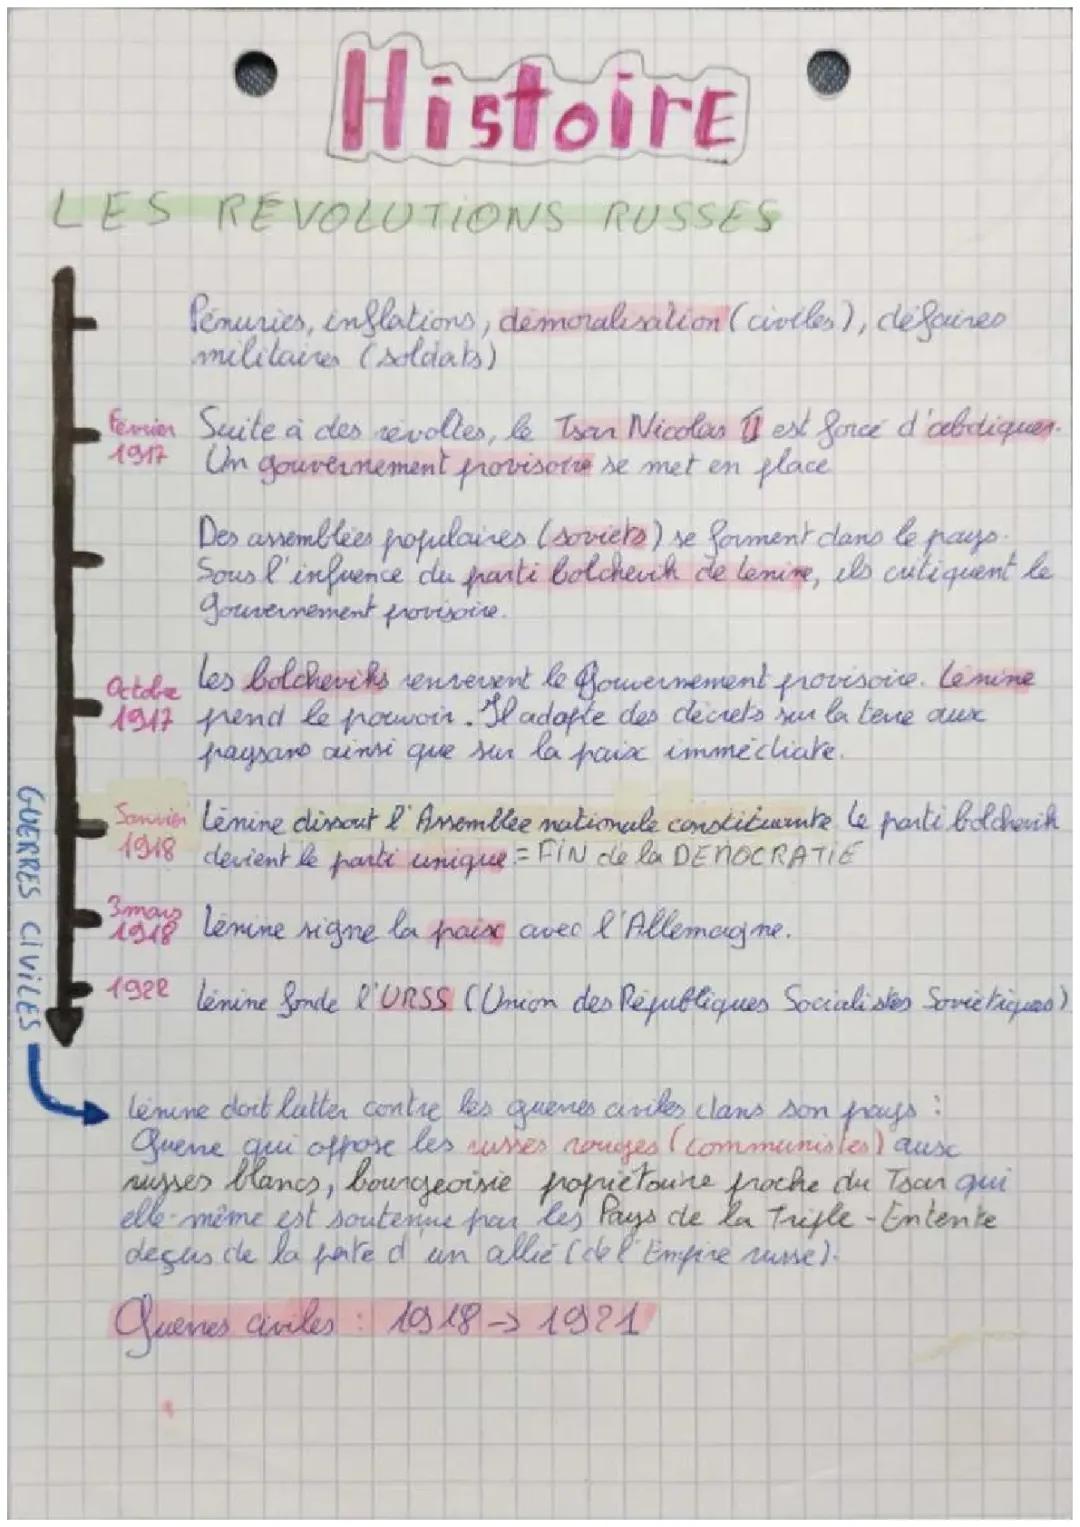 HistoirE
LES REVOLUTIONS RUSSES
Pénuries, inflations, démoralisation (civiles), défaires
militaires (soldats)
Février Suite à des révoltes, le Tsar Nicolas II est forcé d'abdiquer.
1917 Un gouvernement provisoire se met en place
Des assemblées populaires (soviets) se forment dans le pays.
Sous l'infuence du parti bolchevik de Lénine, ils critiquent le
gouvernement provisoire.
Octobre Les bolcheviks renversent le Gouvernement provisoire. Lénine
1917 prend le pouvoir. Il adopte des décrets sur la terre aux
paysans ainsi que sur la paix immédiate.
Janvier Lénine dissout l'Assemblée nationale constituante. Le parti bolchevik
1918 devient le parti unique = FIN de la DEMOCRATIE
3 mars
1918 Lénine signe la paix avec l'Allemagne.
1922 Lénine fonde l'URSS (Union des Républiques Socialistes Soviétiques)
GUERRES CIVILES
Lénine doit lutter contre les guerres civiles dans son pays :
Guerre qui oppose les russes rouges (communistes) aux
russes blancs, bourgeoisie propriétaire proche du Tsar qui
elle-même est soutenue par les Pays de la Triple-Entente
deçus de la perte d'un allié (de l'Empire russe).
Guerres civiles : 1918 → 1921